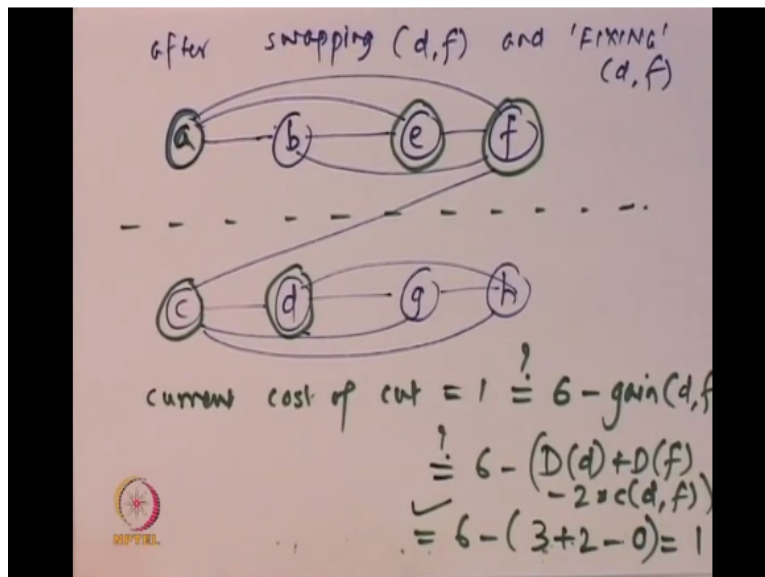 after swapping (d,f) and 'FIXING'
(d,f)
a b e f
c d g h
current cost of cut = 1 ?= 6 - gain(d,f
?= 6 - (D(d) + D(f)
- 2*c(d,f))
✓= 6 - (3+2-0) = 1
NPTEL